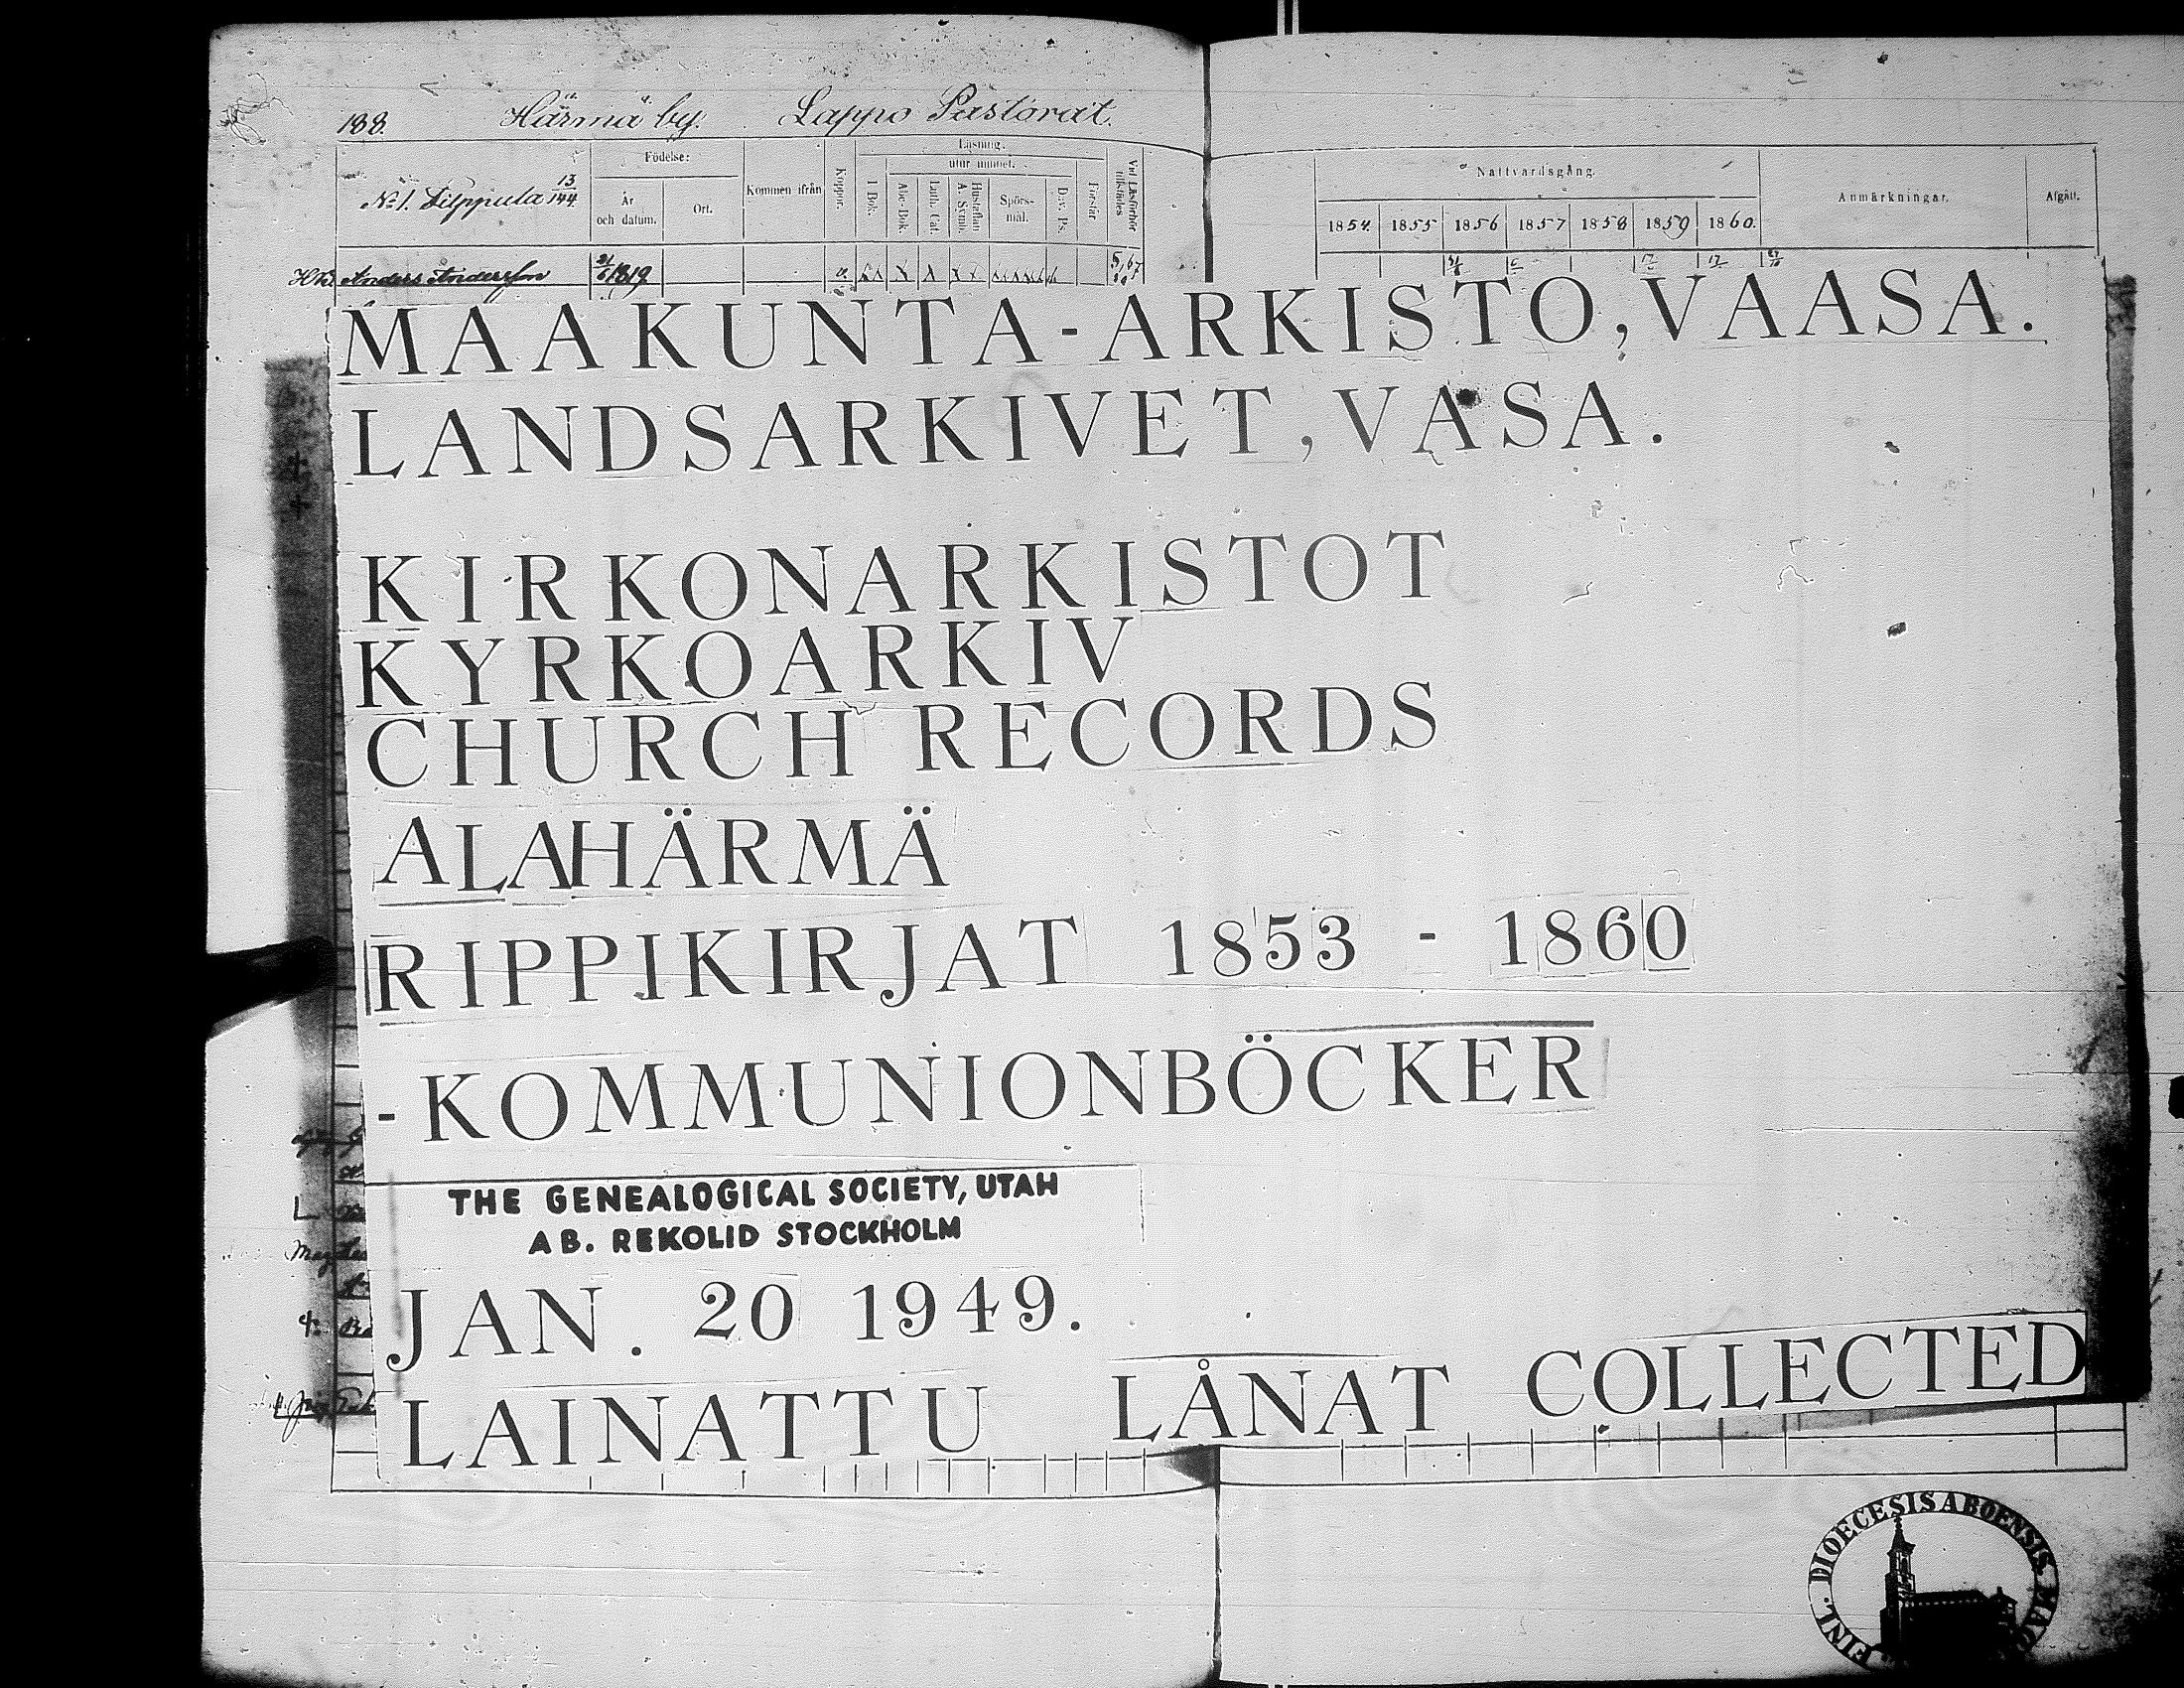 188. Härmä by. Lappo Pastorat.
Födelse:
Läsning.
utur minnet.
Nattvardsgång.
Anmärkningar.
Afgått.
No 1. Lilppula 13/144
År och datum.
Ort.
Kommen ifrån
Koppor.
I Bok.
Abc-Bok.
Luth. Cat.
Hustaflan A. Symb.
Spörs-mål.
Dav. Ps.
Förstår
Vid Läsförhör tillstädes
1854. 1855 1856 1857 1858 1859 1860.
Anders Andersson 1819
MAAKUNTA-ARKISTO, VAASA.
LANDSARKIVET, VASA.
KIRKONARKISTOT
KYRKOARKIV
CHURCH RECORDS
ALAHÄRMÄ
RIPPIKIRJAT 1853 - 1860
-KOMMUNIONBÖCKER
THE GENEALOGICAL SOCIETY, UTAH
AB. REKOLID STOCKHOLM
JAN. 20 1949.
LAINATTU LÅNAT COLLECTED
FINL. DIOECESIS ABOENSIS. MAG